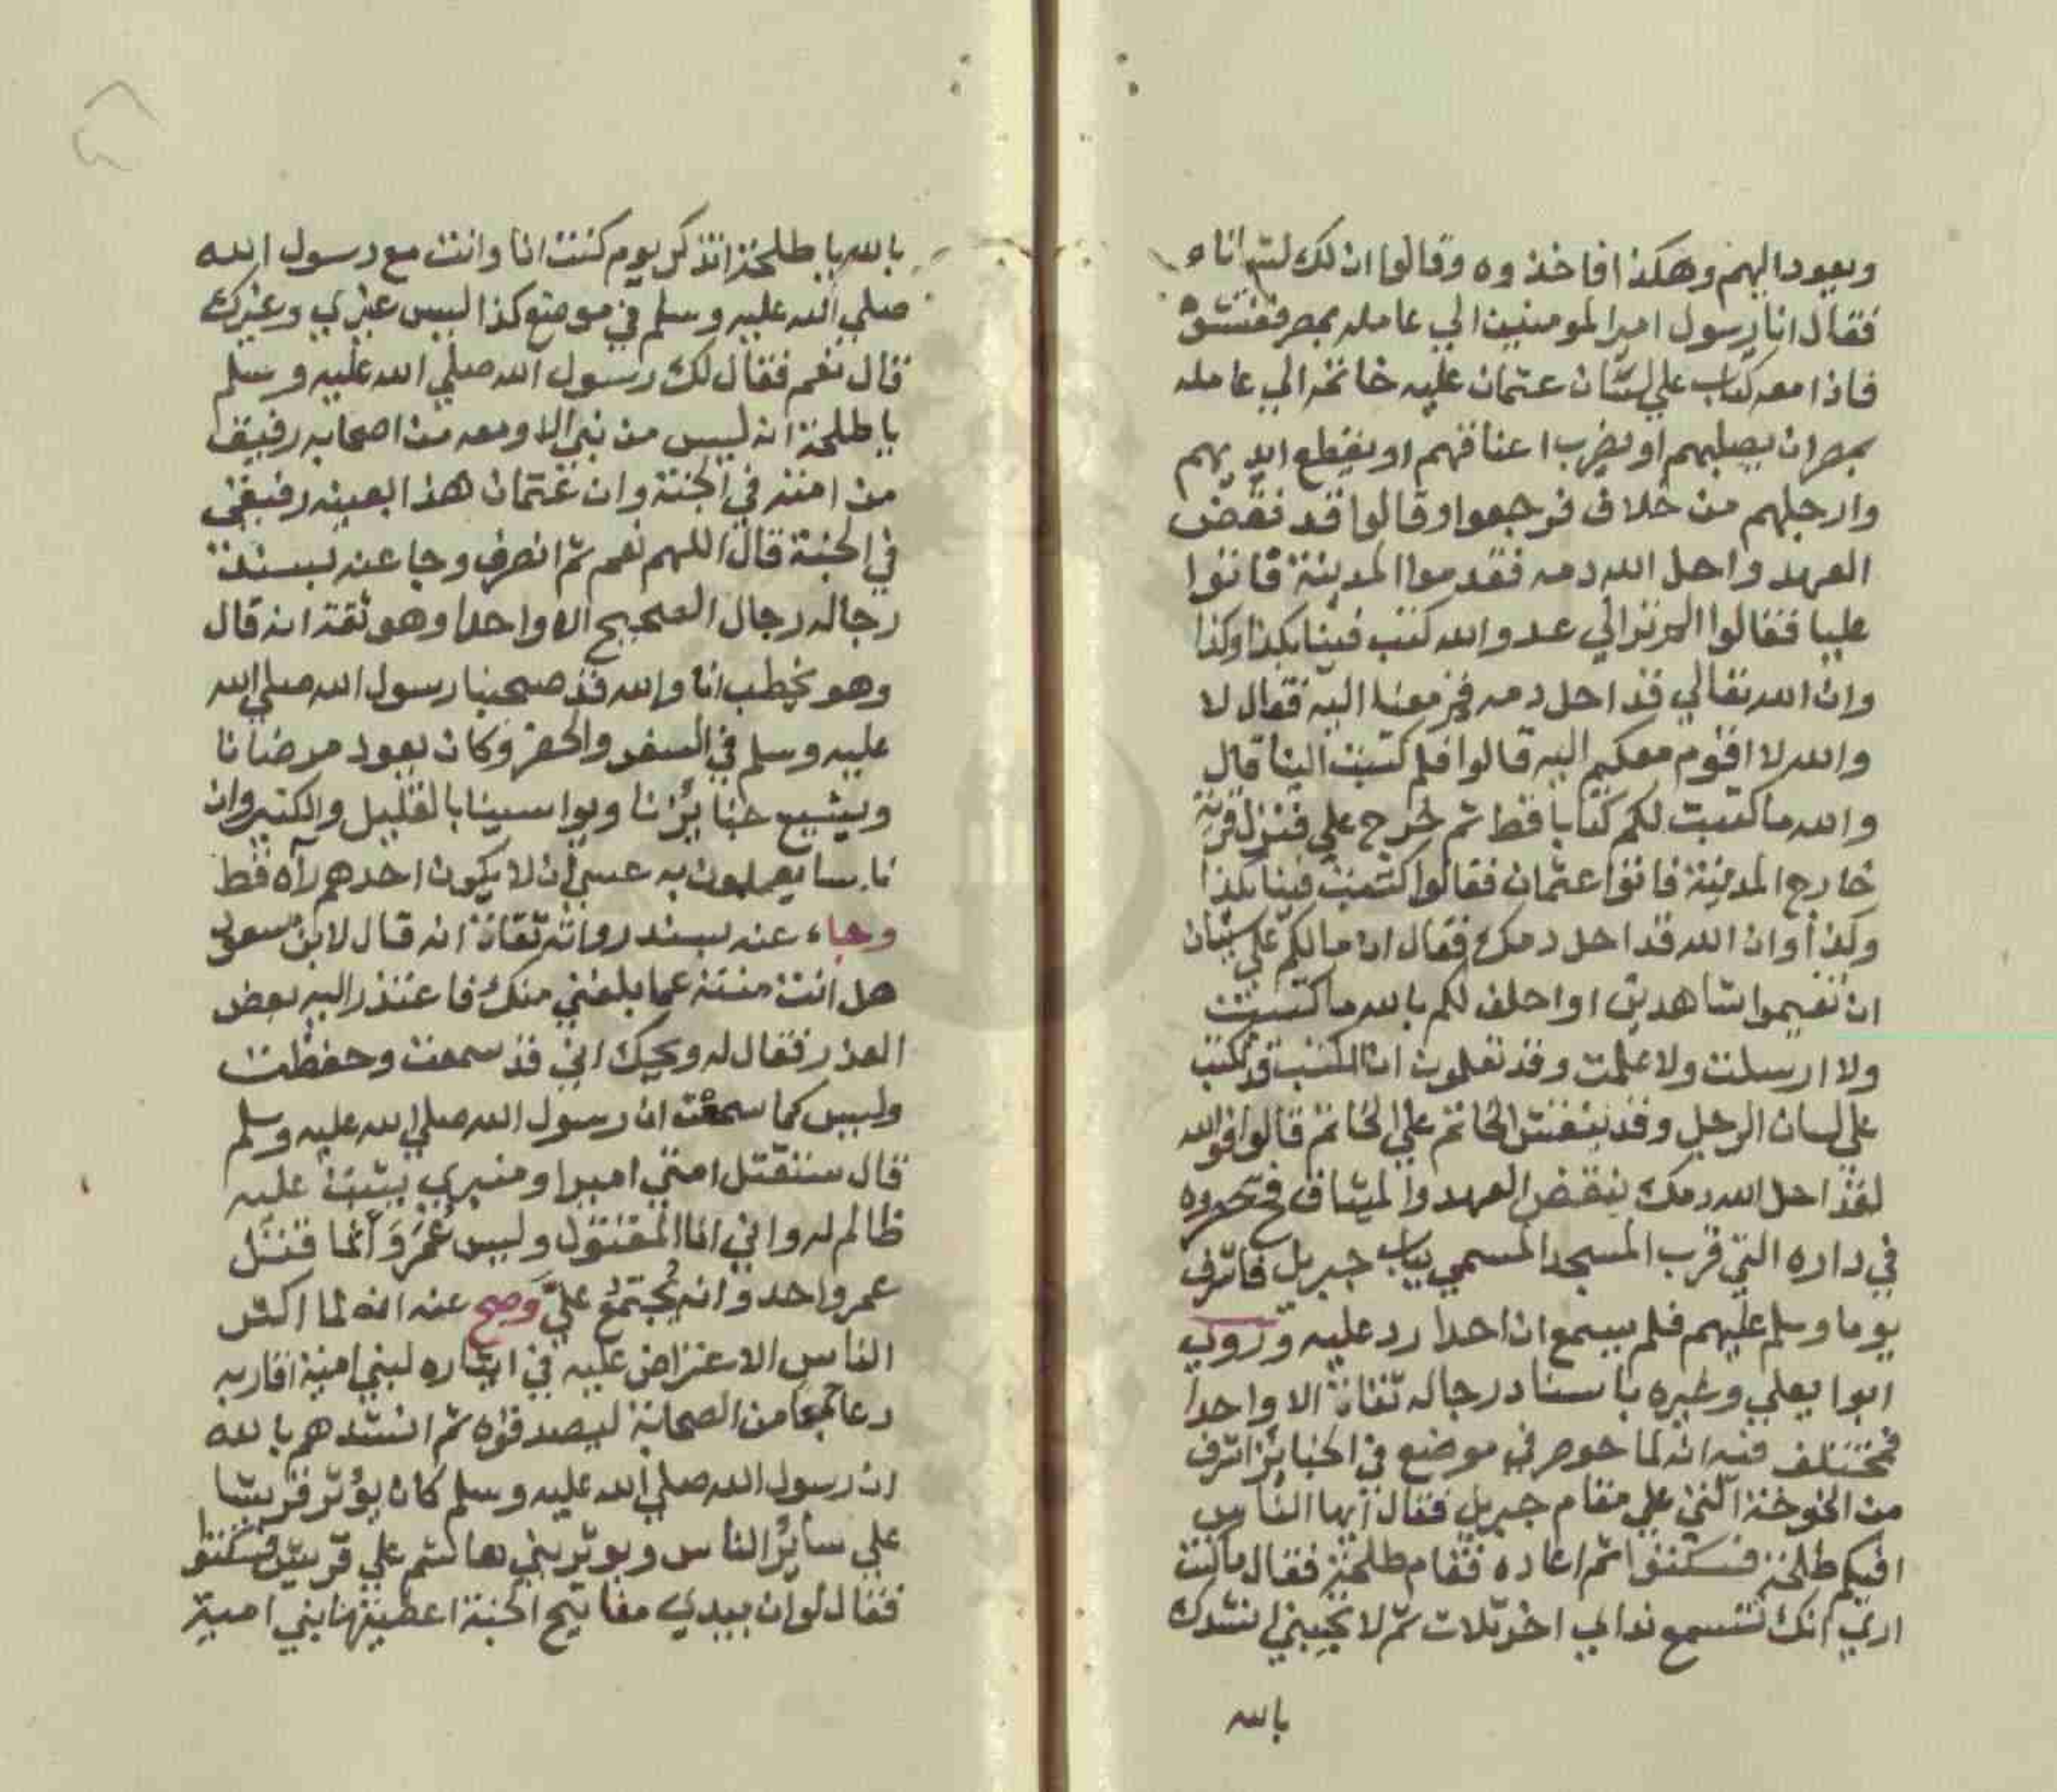 ويعود اليهم وهكذا فاخذوه وقالوا ان لك لشانا
فقال انا رسول امير المومنين الي عامله بمصر ففتشوه
فاذا معه كتاب علي لسان عثمان عليه خاتمه الي عامله
بمصر ان يصلبهم او يضرب اعناقهم او يقطع ايديهم
وارجلهم من خلاف فرجعوا وقالوا قد نقض
العهد واحل الله دمه فقدموا المدينة فاتوا
عليا فقالوا الم تر الي عدو الله كتب فينا بكذا وكذا
وان الله تعالي قد احل دمه فقم معنا اليه فقال لا
والله لا اقوم معكم اليه قالوا فلم كتبت الينا قال
والله ما كتبت لكم كتابا قط ثم خرج علي فنزل قرية
خارج المدينة فاتوا عثمان فقالوا كتبت فينا بكذا
وكذا وان الله قد احل دمك فقال ان ما لكم علي شيان
ان تقيموا شاهدين او احلف لكم بالله ما كتبت
ولا ارسلت ولا علمت وقد تعلمون ان الكتب قد تكتب
علي لسان الرجل وقد ينقش الخاتم علي الخاتم قالوا فوالله
لقد احل الله دمك بنقض العهد والميثاق فحصروه
في داره التي قرب المسجد المسمي بباب جبريل فاشرف
يوما وسلم عليهم فلم يسمع ان احدا رد عليه وروي
ابوا يعلي وغيره باسناد رجاله ثقاة الا واحدا
فمختلف فيه انه لما حوصر في موضع في الجنايز اشرف
من الخوخة التي علي مقام جبريل فقال ايها الناس
افيكم طلحة فسكتوا ثم اعاده فقام طلحة فقال ما كنت
اري انك تسمع نداي اخر ثلاث ثم لا تجيبني انشدك
بالله
بالله يا طلحة اتذكر يوم كنت انا وانت مع رسول الله
صلي الله عليه وسلم في موضع كذا ليس غيري وغيرك
قال نعم فقال لك رسول الله صلي الله عليه وسلم
يا طلحة انه ليس من نبي الا ومعه من اصحابه رفيق
من امته في الجنة وان عثمان هذا بعينه رفيقي
في الجنة قال اللهم نعم ثم انصرف وجا عنه بسند
رجاله رجال الصحيح الا واحدا وهو ثقة انه قال
وهو يخطب انا والله قد صحبنا رسول الله صلي الله
عليه وسلم في السفر والحضر وكان يعود مرضانا
ويشيع جنايزنا ويواسينا بالقليل والكثير وان
ناسا يعلمون به عسي ان لا يكون احدهم رآه قط
وجاء عنه بسند رواته ثقاة انه قال لابن مسعود
هل انت منته عما بلغني منك فاعتذر اليه بعض
العذر فقال له ويحك اني قد سمعت وحفظت
وليس كما سمعت ان رسول الله صلي الله عليه وسلم
قال ستقتل امتي اميرا ومنبري يثبت عليه
ظالم له واني انا المقتول وليس عُمَرَ وَانما قتل
عمر واحد وانه يُجتمعُ عليَّ وَصح عنه انه لما اكثر
الناس الاعتراض عليه في ايثاره لبني امية اقاربه
دعا جمعا من الصحابة ليصدقوه ثم انشدهم بالله
ان رسول الله صلي الله عليه وسلم كان يؤثر قريشا
علي سائر الناس ويوثر بني هاشم علي قريش فسكتوا
فقال لو ان بيدي مفاتيح الجنة اعطيتها بني امية